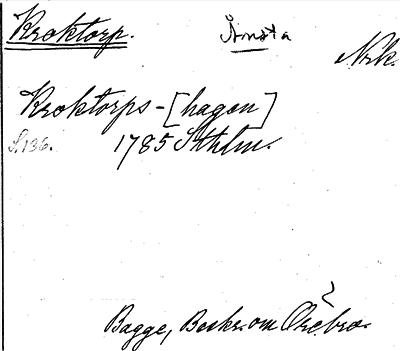 Kroktorp. Ånsta
Nrk.
Kroktorps-[hagen]
S.136. 1785 Sthlm.
Bagge, Beskr. om Örebro.